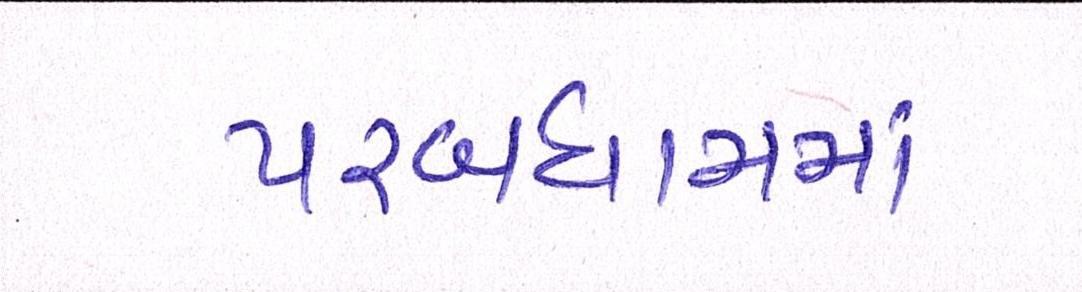 પરબધામમાં